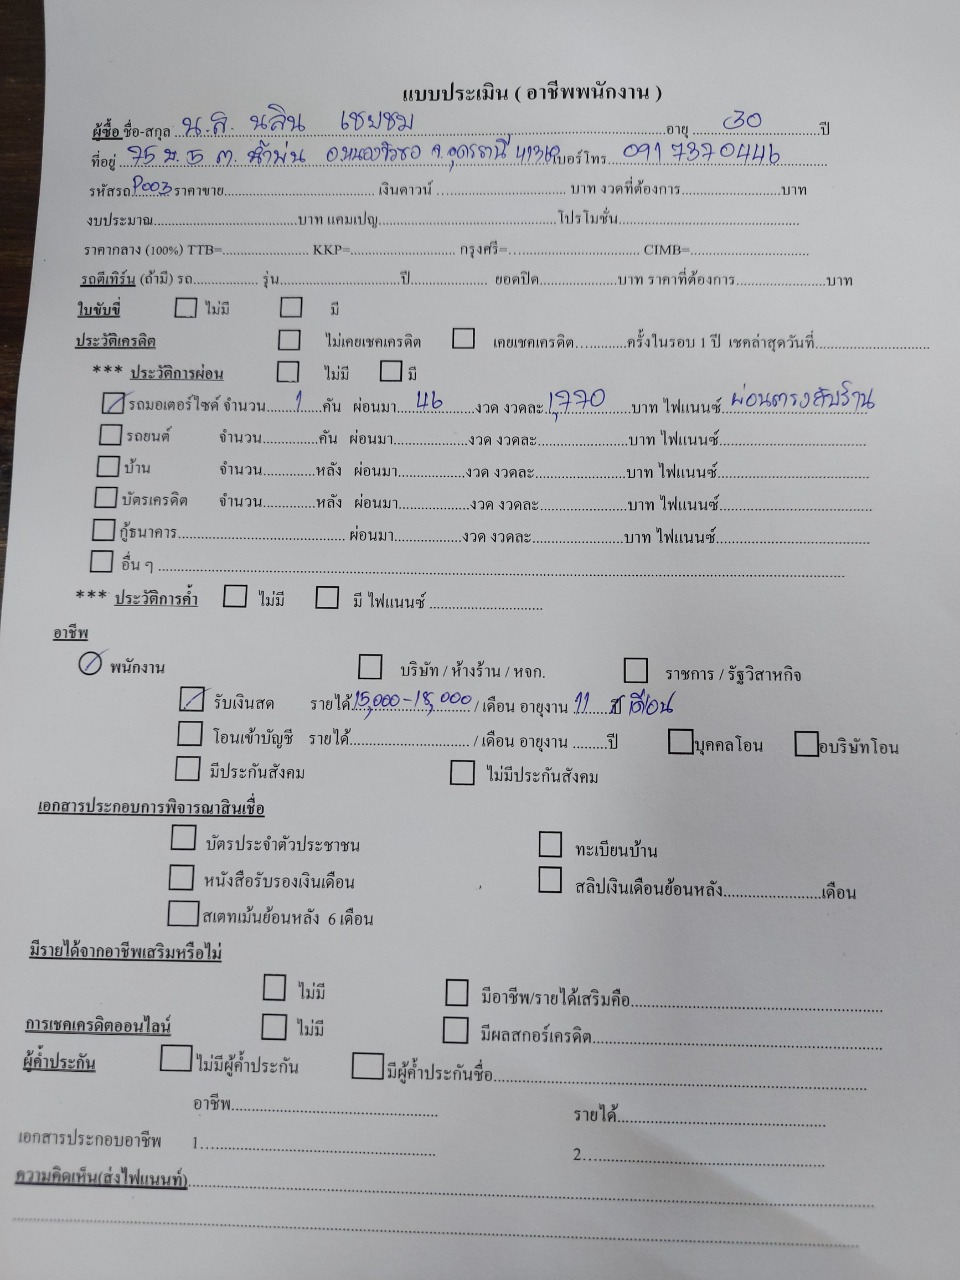 แบบประเมิน ( อาชีพพนักงาน )
ผู้ซื้อ ชื่อ-สกุล น.ส. นลิน เชยชม อายุ 30 ปี
ที่อยู่ 75 ม.5 ต. น้ำพ่น อ.หนองวัวซอ จ.อุดรธานี 41360 เบอร์โทร 091 7370446
รหัสรถ P003 ราคาขาย เงินดาวน์ บาท งวดที่ต้องการ บาท
งบประมาณ บาท แคมเปญ โปรโมชั่น
ราคากลาง (100%) TTB= KKP= กรุงศรี= CIMB=
รถตีเทิร์น (ถ้ามี) รถ รุ่น ปี ยอดปิด บาท ราคาที่ต้องการ บาท
ใบขับขี่ ไม่มี มี
ประวัติเครดิต ไม่เคยเชคเครดิต เคยเชคเครดิต ครั้งในรอบ 1 ปี เชคล่าสุดวันที่
*** ประวัติการผ่อน ไม่มี มี
รถมอเตอร์ไซด์ จำนวน 1 คัน ผ่อนมา 46 งวด งวดละ 1,770 บาท ไฟแนนซ์ ผ่อนตรงกับร้าน
รถยนต์ จำนวน คัน ผ่อนมา งวด งวดละ บาท ไฟแนนซ์
บ้าน จำนวน หลัง ผ่อนมา งวด งวดละ บาท ไฟแนนซ์
บัตรเครดิต จำนวน หลัง ผ่อนมา งวด งวดละ บาท ไฟแนนซ์
กู้ธนาคาร ผ่อนมา งวด งวดละ บาท ไฟแนนซ์
อื่น ๆ
*** ประวัติการค้ำ ไม่มี มี ไฟแนนซ์
อาชีพ
พนักงาน บริษัท / ห้างร้าน / หจก. ราชการ / รัฐวิสาหกิจ
รับเงินสด รายได้ 15,000-18,000 / เดือน อายุงาน 11 เดือน
โอนเข้าบัญชี รายได้ / เดือน อายุงาน ปี บุคคลโอน อบริษัทโอน
มีประกันสังคม ไม่มีประกันสังคม
เอกสารประกอบการพิจารณาสินเชื่อ
บัตรประจำตัวประชาชน ทะเบียนบ้าน
หนังสือรับรองเงินเดือน สลิปเงินเดือนย้อนหลัง เดือน
สเตทเม้นย้อนหลัง 6 เดือน
มีรายได้จากอาชีพเสริมหรือไม่
ไม่มี มีอาชีพ/รายได้เสริมคือ
การเชคเครดิตออนไลน์ ไม่มี มีผลสกอร์เครดิต
ผู้ค้ำประกัน ไม่มีผู้ค้ำประกัน มีผู้ค้ำประกันชื่อ
อาชีพ รายได้
เอกสารประกอบอาชีพ 1 2
ความคิดเห็น(ส่งไฟแนนท์)